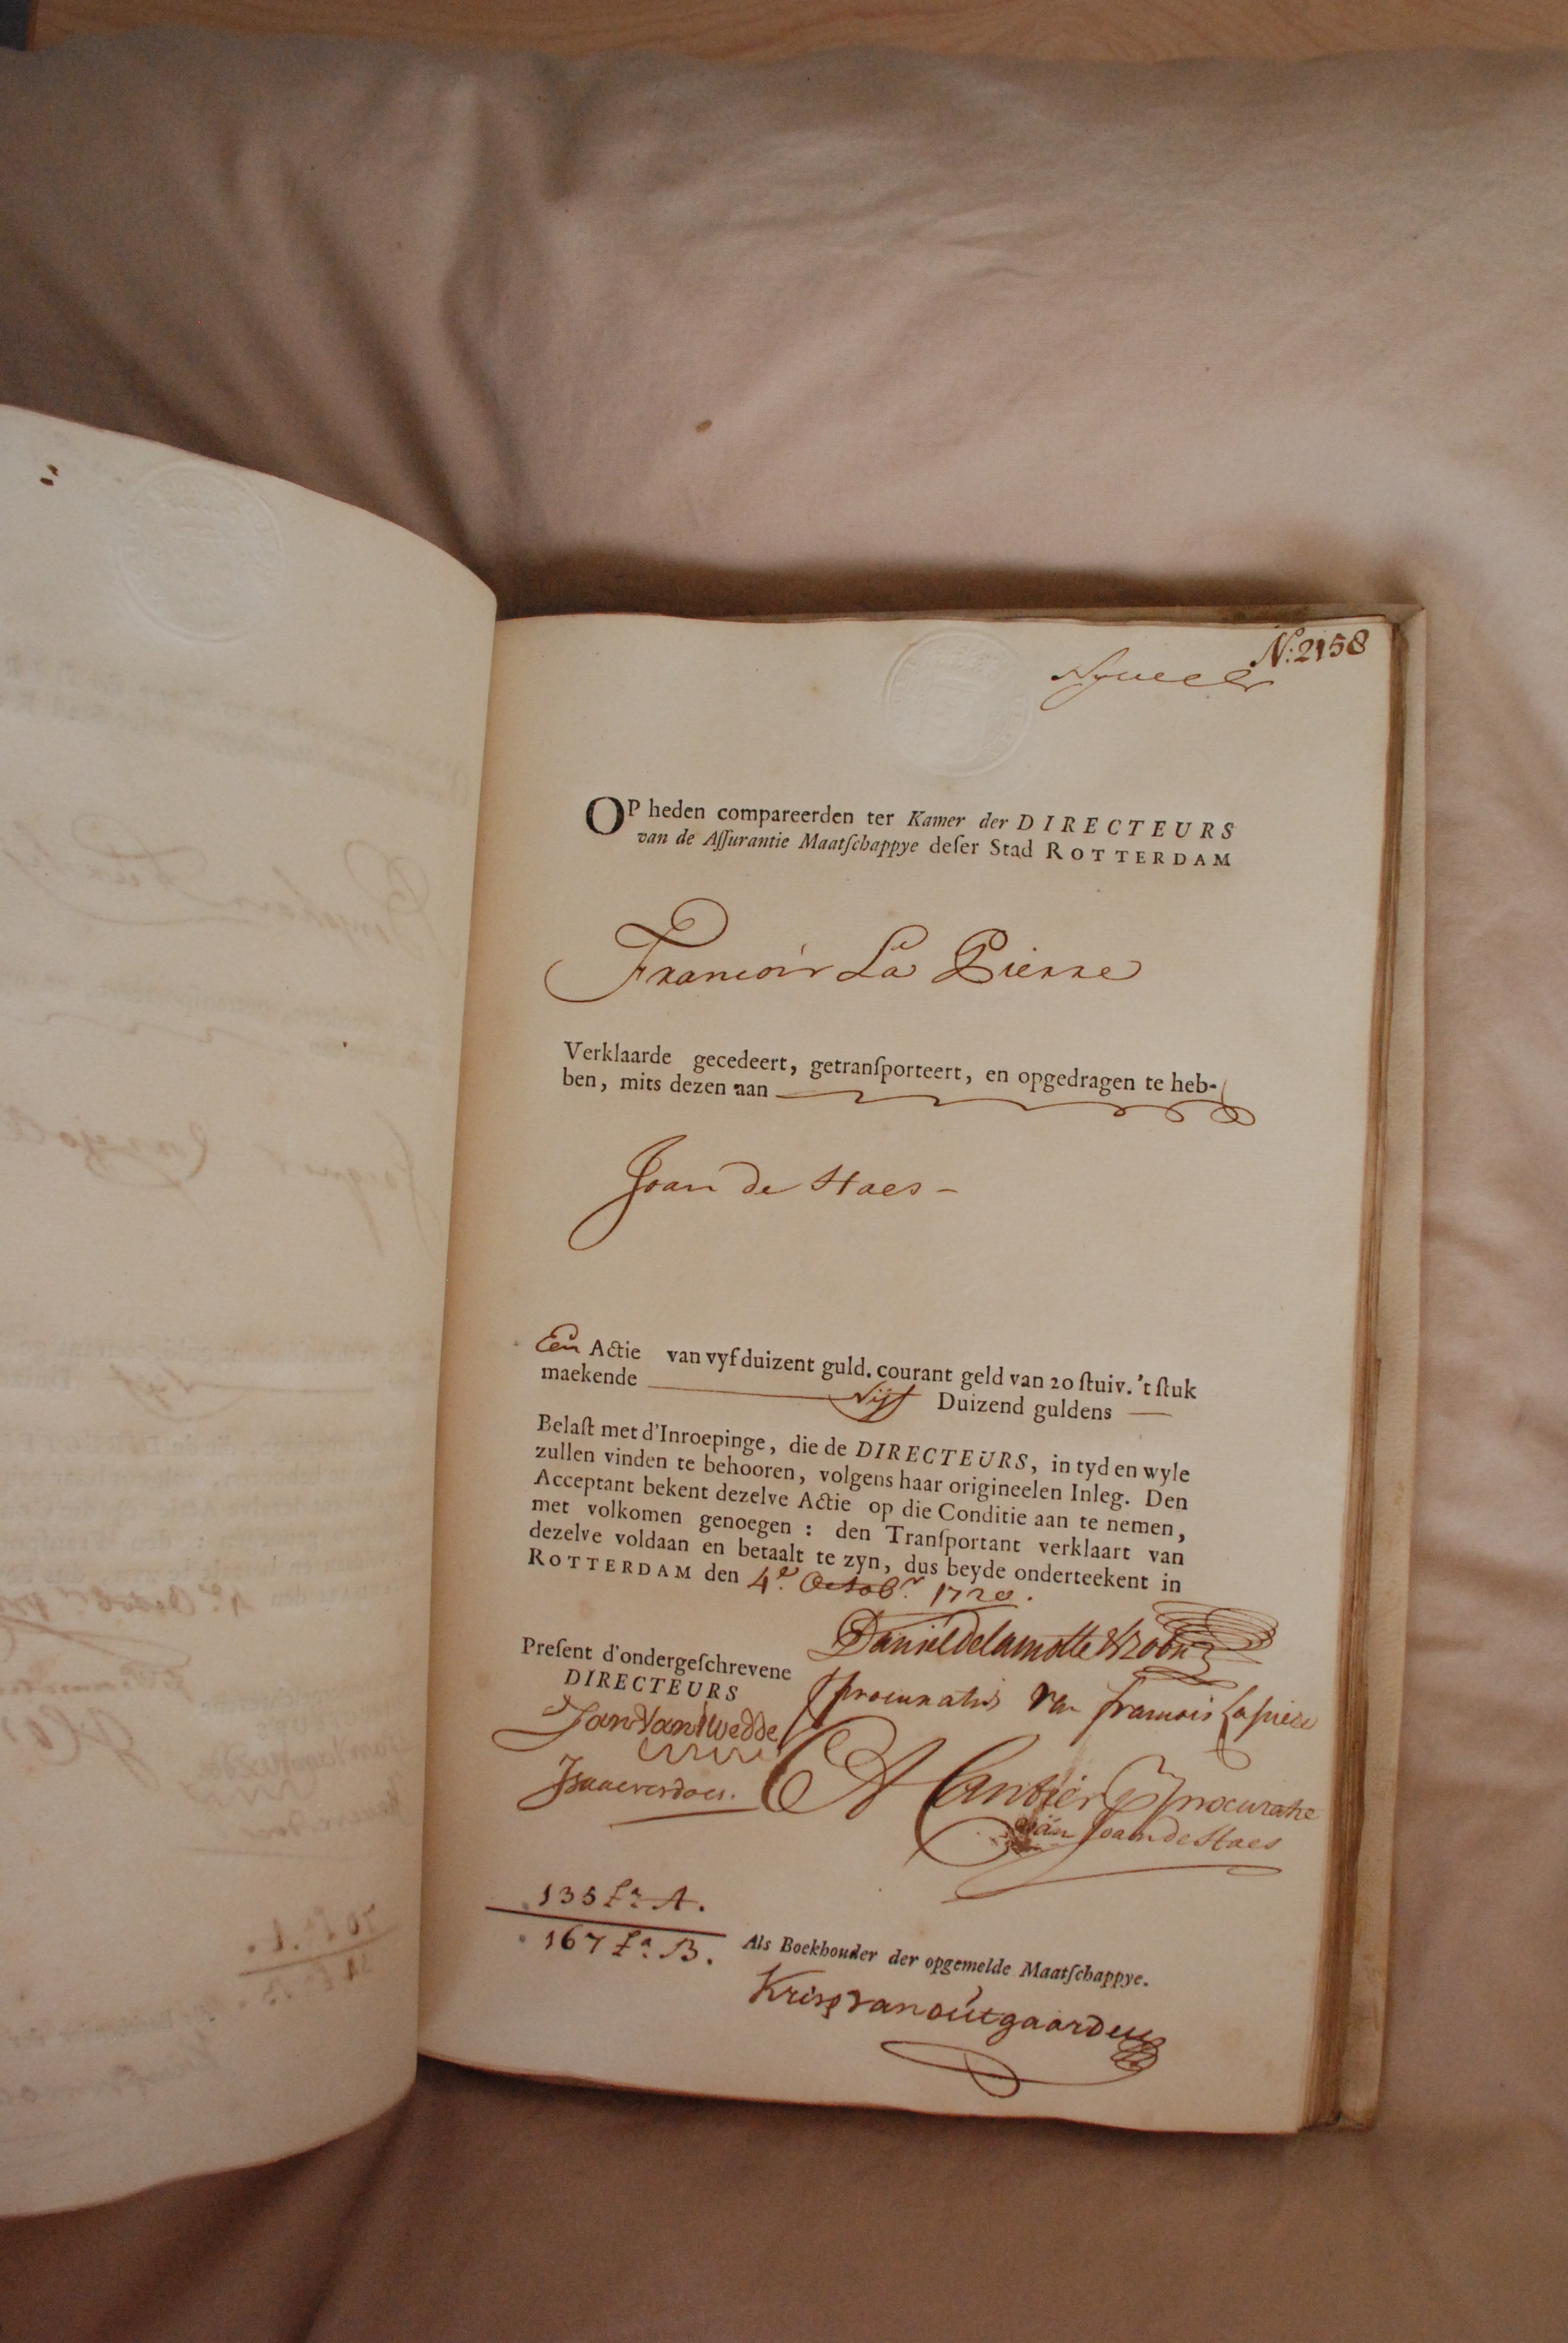 N:2158
OP heden compareerden ter Kamer der DIRECTEURS
van de Aſſurantie Maatſchappye deſer Stad ROTTERDAM
Francois La Pierre
Verklaarde gecedeert, getranſporteert, en opgedragen te heb-
ben, mits dezen aan
Joan de Haes
Een Actie van vyf duizent guld. courant geld van 20 ſtuiv. 't ſtuk
maekende Vijf Duizend guldens
Belaſt met d'Inroepinge, die de DIRECTEURS, in tyd en wyle
zullen vinden te behooren, volgens haar origineelen Inleg. Den
Acceptant bekent dezelve Actie op die Conditie aan te nemen,
met volkomen genoegen : den Tranſportant verklaart van
dezelve voldaan en betaalt te zyn, dus beyde onderteekent in
ROTTERDAM den 4e. Octobr. 1720.
Daniel delamotte
Preſent d'ondergeſchrevene
DIRECTEURS
procuratie van francois Lapiere
Jan Van Twedde
procuratie
van Joan de Haes
135 Fo. A.
167 Fo. B.
Als Boekhouder der opgemelde Maatſchappye.
Krisp van outgaarden